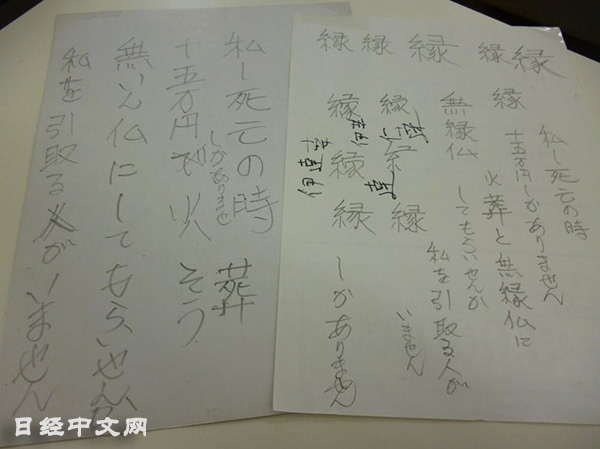 私し死亡の時
十五万円で火そう
しかありませ
葬
無いん仏にしてもらいせんか
私を引取る人がいません
縁縁縁縁縁
縁縁縁
無縁仏
縁縁
縁縁
伊達
私し死亡の時
十五万円しかありません
火葬と無縁仏に
してもらいせんか
私を引取る人が
いません
しかありません
日经中文网